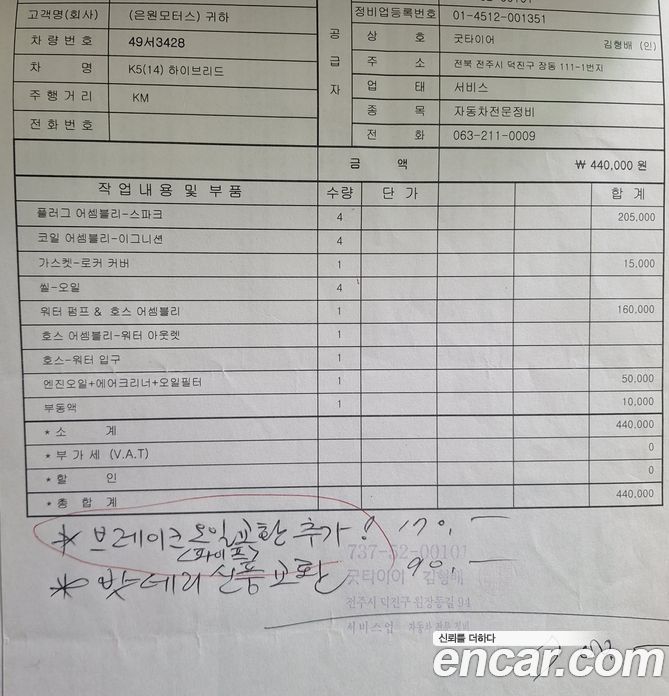 고객명(회사) (은원모터스) 귀하
정비업등록번호 01-4512-001351
차 량 번 호 49서3428
상 호 굿타이어 김형배 (인)
차 명 K5(14) 하이브리드
공급자
주 소 전북 전주시 덕진구 장동 111-1번지
주 행 거 리 KM
업 태 서비스
종 목 자동차전문정비
전 화 번 호
전 화 063-211-0009
금 액 ₩ 440,000 원
작 업 내 용 및 부 품 수량 단 가 합 계
플러그 어셈블리-스파크 4 205,000
코일 어셈블리-이그니션 4
가스켓-로커 커버 1 15,000
씰-오일 4
워터 펌프 & 호스 어셈블리 1 160,000
호스 어셈블리-워터 아웃렛 1
호스-워터 입구 1
엔진오일+에어크리너+오일필터 1 50,000
부동액 1 10,000
* 소 계 440,000
* 부 가 세 (V.A.T) 0
* 할 인 0
* 총 합 계 440,000
* 브레이크 오일교환 추가! 170,-
<파이프>
737-52-00101
* 밧데리 신품교환 90,-
굿타이어 김형배
전주시 덕진구 원장동길 94
서비스업 자동차전문정비
신뢰를 더하다
encar.com